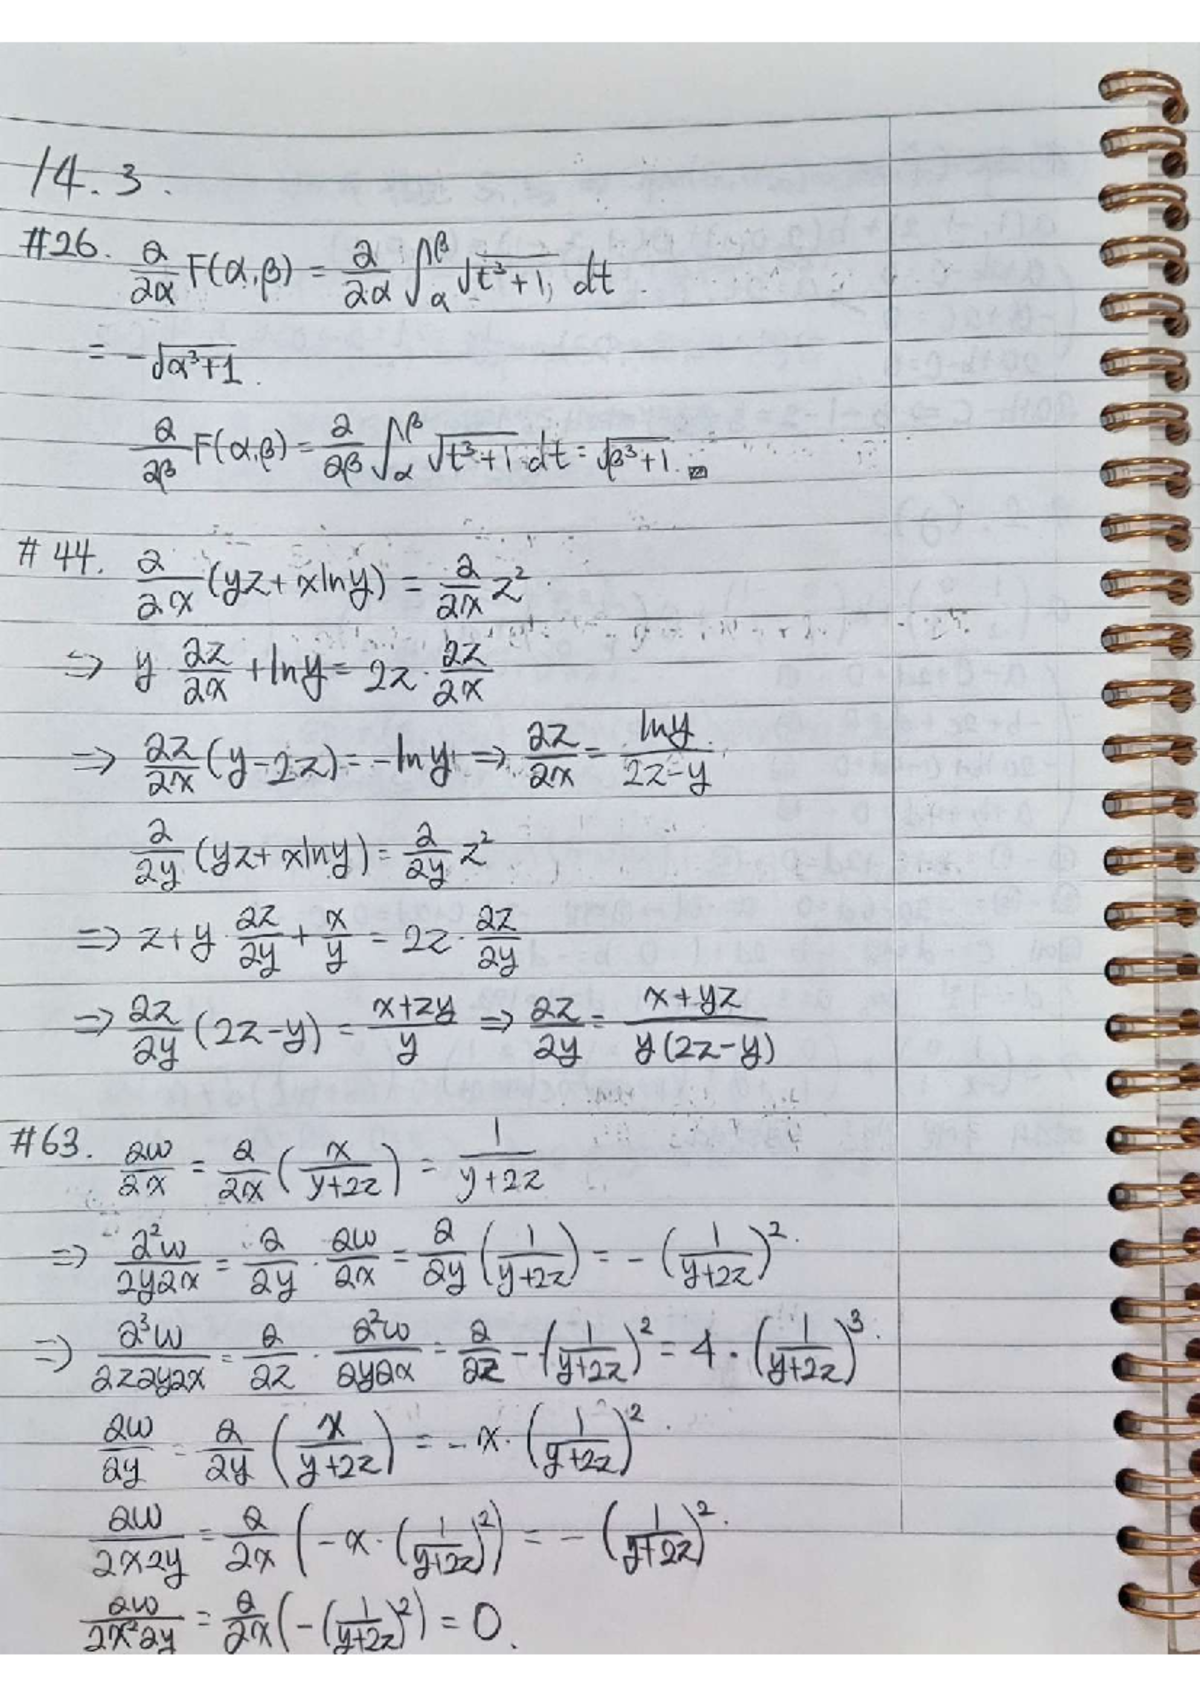 14.3.
#26. ∂/∂α F(α,β) = ∂/∂α ∫_α^β √(t³+1) dt.
= -√(α³+1).
∂/∂β F(α,β) = ∂/∂β ∫_α^β √(t³+1) dt = √(β³+1).
#44. ∂/∂x (yz+xlny) = ∂/∂x z²
⇒ y·∂z/∂x + lny = 2z·∂z/∂x
⇒ ∂z/∂x (y-2z) = -lny ⇒ ∂z/∂x = lny/(2z-y)
∂/∂y (yz+xlny) = ∂/∂y z²
⇒ z+y·∂z/∂y + x/y = 2z·∂z/∂y
⇒ ∂z/∂y (2z-y) = (x+zy)/y ⇒ ∂z/∂y = (x+yz)/(y(2z-y))
#63. ∂w/∂x = ∂/∂x (x/(y+2z)) = 1/(y+2z)
⇒ ∂²w/∂y∂x = ∂/∂y · ∂w/∂x = ∂/∂y (1/(y+2z)) = -(1/(y+2z))².
⇒ ∂³w/∂z∂y∂x = ∂/∂z · ∂²w/∂y∂x = ∂/∂z -(1/(y+2z))² = 4·(1/(y+2z))³.
∂w/∂y = ∂/∂y (x/(y+2z)) = -x·(1/(y+2z))².
∂w/∂x∂y = ∂/∂x (-x·(1/(y+2z))²) = -(1/(y+2z))².
∂w/∂x²∂y = ∂/∂x (-(1/(y+2z))²) = 0.